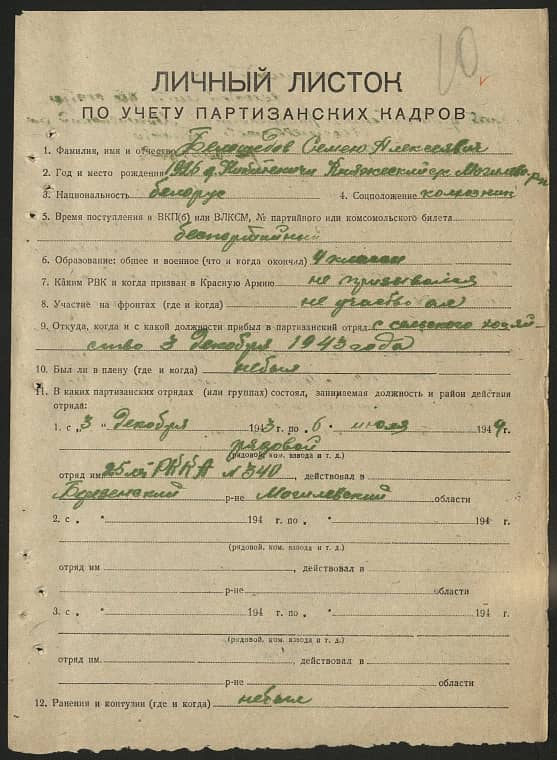 10
ЛИЧНЫЙ ЛИСТОК
ПО УЧЕТУ ПАРТИЗАНСКИХ КАДРОВ
1. Фамилия, имя и отчество Семен Алексеевич
2. Год и место рождения 1926 д.
3. Национальность белорус 4. Соцположение колхозник
5. Время поступления в ВКП(б) или ВЛКСМ, № партийного или комсомольского билета
беспортийний
6. Образование: общее и военное (что и когда окончил) 4 класса
7. Каким РВК и когда призван в Красную Армию не призывался
8. Участие на фронтах (где и когда) не участво ал
9. Откуда, когда и с какой должности прибыл в партизанский отряд с сельского хозяй-
ство 3 Декобря 1943 года
10. Был ли в плену (где и когда) небыл
11. В каких партизанских отрядах (или группах) состоял, занимаемая должность и район действия
отряда:
1. с „3 " Декобря 1943 г. по „6 июля 1944 г.
рядовой
(рядовой, ком. взвода и т. д.)
отряд им 25 лет РККА N 340, действовал в
р-не Могилевский области
2. с „ " 194 г. по „ " 194 г.
(рядовой, ком. взвода и т. д.)
отряд им , действовал в
р-не области
3. с „ " 194 г. по „ " 194 г.
(рядовой, ком. взвода и т. д.)
отряд им. , действовал в
р-не области
12. Ранения и контузии (где и когда) небыл